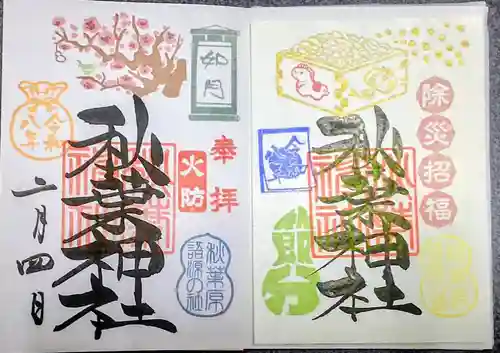 奉拝
如月
火防
秋葉神社
令和八年
二月四日
秋葉原
語源の社
除災招福
秋葉神社
節分